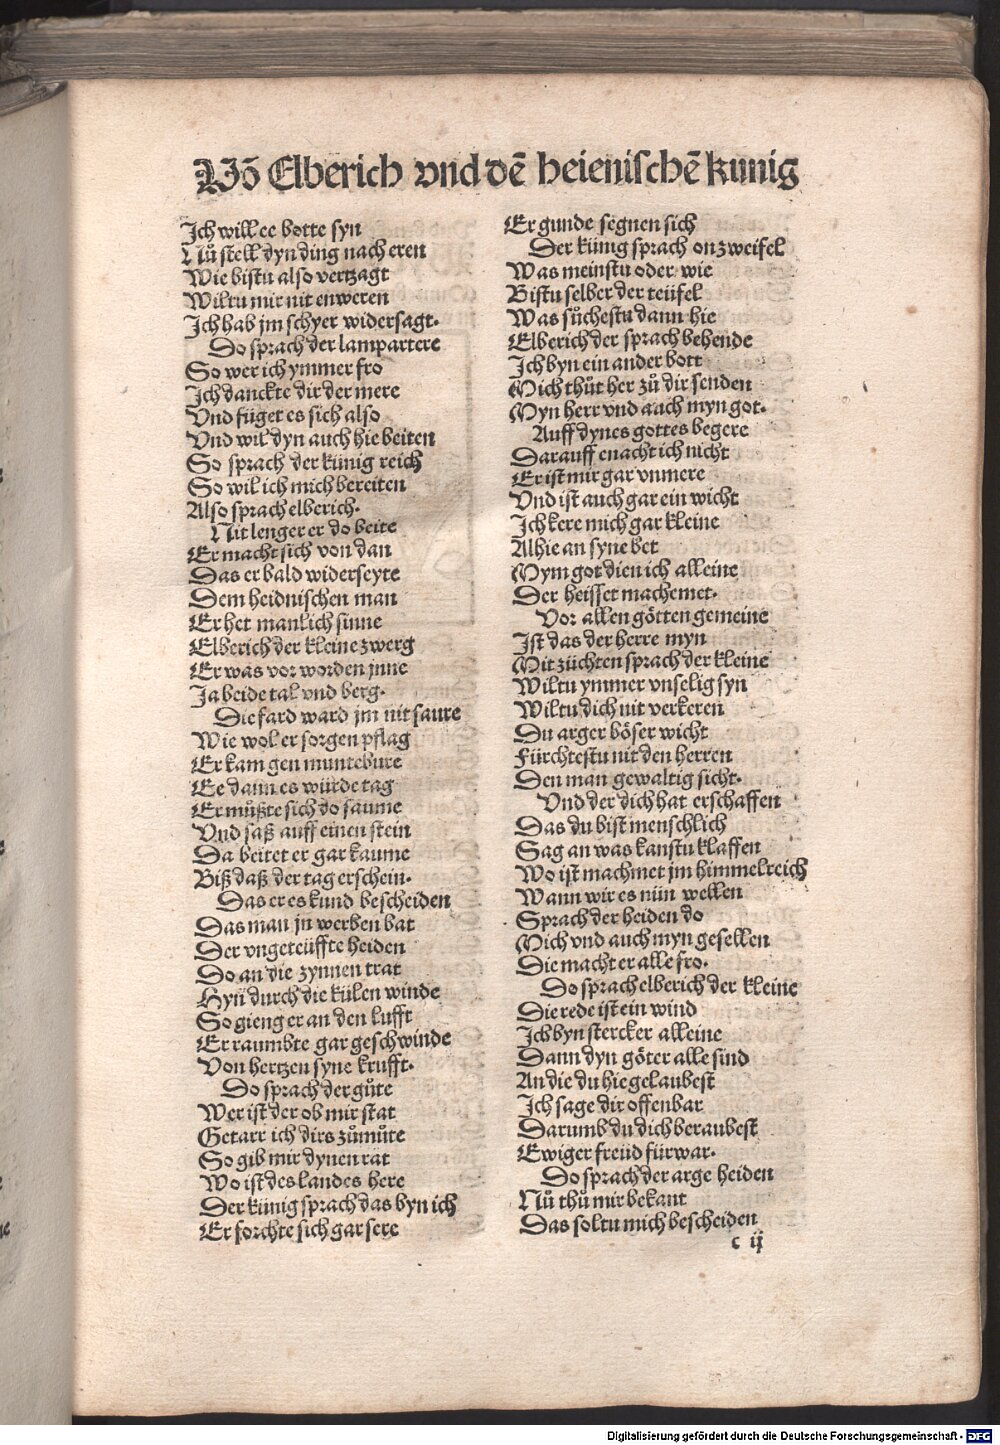 Vō Elberich vnd dē heienischē kunig
Ich will ee botte syn
Nů stell dyn ding nach eren
Wie bistu also vertzagt
Wiltu mir nit enweren
Ich hab jm schyer widersagt.
Do sprach der lampartere
So wer ich ymmer fro
Ich danckte dir der mere
Vnd füget es sich also
Vnd wil dyn auch hie beiten
So sprach der künig reich
So wil ich mich bereiten
Also sprach elberich.
Nit lenger er do beite
Er macht sich von dan
Das er bald widerseyte
Dem heidnischen man
Er het manlich sinne
Elberich der kleine zwerg
Er was vor worden jnne
Ja beide tal vnd berg.
Die fard ward jm nit saure
Wie wol er sorgen pflag
Er kam gen muntebure
Ee dann es würde tag
Er můßte sich do saume
Vnd saß auff einen stein
Da beitet er gar kaume
Biß daß der tag erschein.
Das er es kund bescheiden
Das man jn werben bat
Der vngeteüffte heiden
Do an die zynnen trat
Hyn durch die külen winde
So gieng er an den lufft
Er raumbte gar geschwinde
Von hertzen syne krufft.
Do sprach der gůte
Wer ist der ob mir stat
Getarr ich dirs zůmůte
So gib mir dynen rat
Wo ist des landes here
Der künig sprach das byn ich
Er forchte sich gar sere
Er gunde segnen sich
Der künig sprach on zweifel
Was meinstu oder wie
Bistu selber der teüfel
Was sůchestu dann hie
Elberich der sprach behende
Ich byn ein ander bott
Mich thůt her zů dir senden
Myn herr vnd auch myn got.
Auff dynes gottes begere
Darauff enacht ich nicht
Er ist mir gar vnmere
Vnd ist auch gar ein wicht
Ich kere mich gar kleine
Alhie an syne bet
Mym got dien ich alleine
Der heisset machemet.
Vor allen götten gemeine
Ist das der herre myn
Mit züchten sprach der kleine
Wiltu ymmer vnselig syn
Wiltu dich nit verkeren
Du arger böser wicht
Fürchtestu nit den herren
Den man gewaltig sicht.
Vnd der dich hat erschaffen
Das du bist menschlich
Sag an was kanstu klaffen
Wo ist machmet jm himmelreich
Wann wir es nün wellen
Sprach der heiden do
Mich vnd auch myn gesellen
Die macht er alle fro.
Do sprach elberich der kleine
Die rede ist ein wind
Ich byn stercker alleine
Dann dyn göter alle sind
An die du hie gelaubest
Ich sage dir offenbar
Darumb du dich beraubest
Ewiger freüd fürwar.
Do sprach der arge heiden
Nů thů mir bekant
Das soltu mich bescheiden
c ij
Digitalisierung gefördert durch die Deutsche Forschungsgemeinschaft - DFG